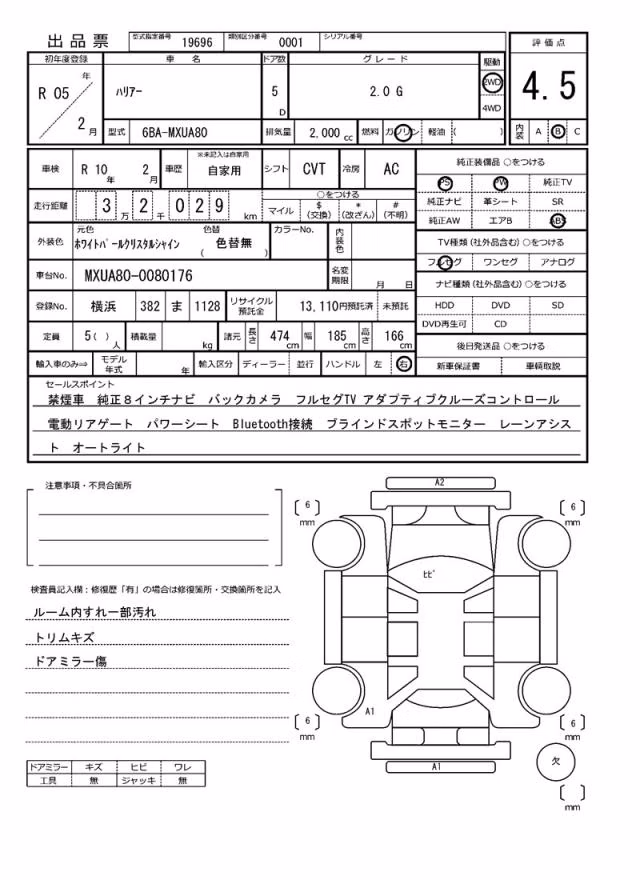 出品票
型式指定番号 19696 類別区分番号 0001 シリアル番号
評価点
4.5
内装 A B C
初年度登録 車名 ドア数 グレード 駆動
R 05 年 2 月 ハリアー 5 D 2.0 G 2WD 4WD
型式 6BA-MXUA80 排気量 2,000 cc 燃料 ガソリン 軽油 ( )
車検 R 10 年 2 月 車歴 ※未記入は自家用 自家用 シフト CVT 冷房 AC
走行距離 3 万 2 千 0 2 9 km
○をつける
マイル $ (交換) * (改ざん) # (不明)
外装色 元色 ホワイトパールクリスタルシャイン 色替 ( 色替無 ) カラーNo. 内装色
車台No. MXUA80-0080176 名変期限 月 日
登録No. 横浜 382 ま 1128 リサイクル預託金 13,110円預託済 未預託
定員 5 ( ) 人 積載量 kg 諸元 長さ 474 cm 幅 185 cm 高さ 166 cm
輸入車のみ⇒ モデル年式 年 輸入区分 ディーラー 並行 ハンドル 左 右
純正装備品 ○をつける
PS PW 純正TV
純正ナビ 革シート SR
純正AW エアB ABS
TV種類 (社外品含む) ○をつける
フルセグ ワンセグ アナログ
ナビ種類 (社外品含む) ○をつける
HDD DVD SD
DVD再生可 CD
後日発送品 ○をつける
新車保証書 車輌取説
セールスポイント
禁煙車 純正８インチナビ バックカメラ フルセグTV アダプティブクルーズコントロール
電動リアゲート パワーシート Bluetooth接続 ブラインドスポットモニター レーンアシス
ト オートライト
注意事項・不具合箇所
検査員記入欄：修復歴「有」の場合は修復箇所・交換箇所を記入
ルーム内すれ一部汚れ
トリムキズ
ドアミラー傷
ドアミラー キズ ヒビ ワレ
工具 無 ジャッキ 無
A2
6 mm
6 mm
ヒビ
A1
6 mm
6 mm
A1
欠
mm